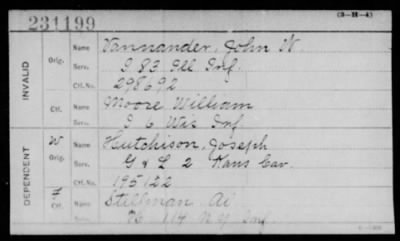 (3-H-4)
231199
INVALID
Orig.
Name Vannander, John W.
Serv. I 83 Ill Inf.
Ctf. No. 298692
Ctf.
Name Moore William
Serv. I 6 Wis Inf.
DEPENDENT
W
Orig.
Name Hutchison, Joseph
Serv. G & L 2 Kans Cav.
Ctf. No. 195122
Ctf.
Name Stillman, Al
Serv. 114 N.Y. Inf.